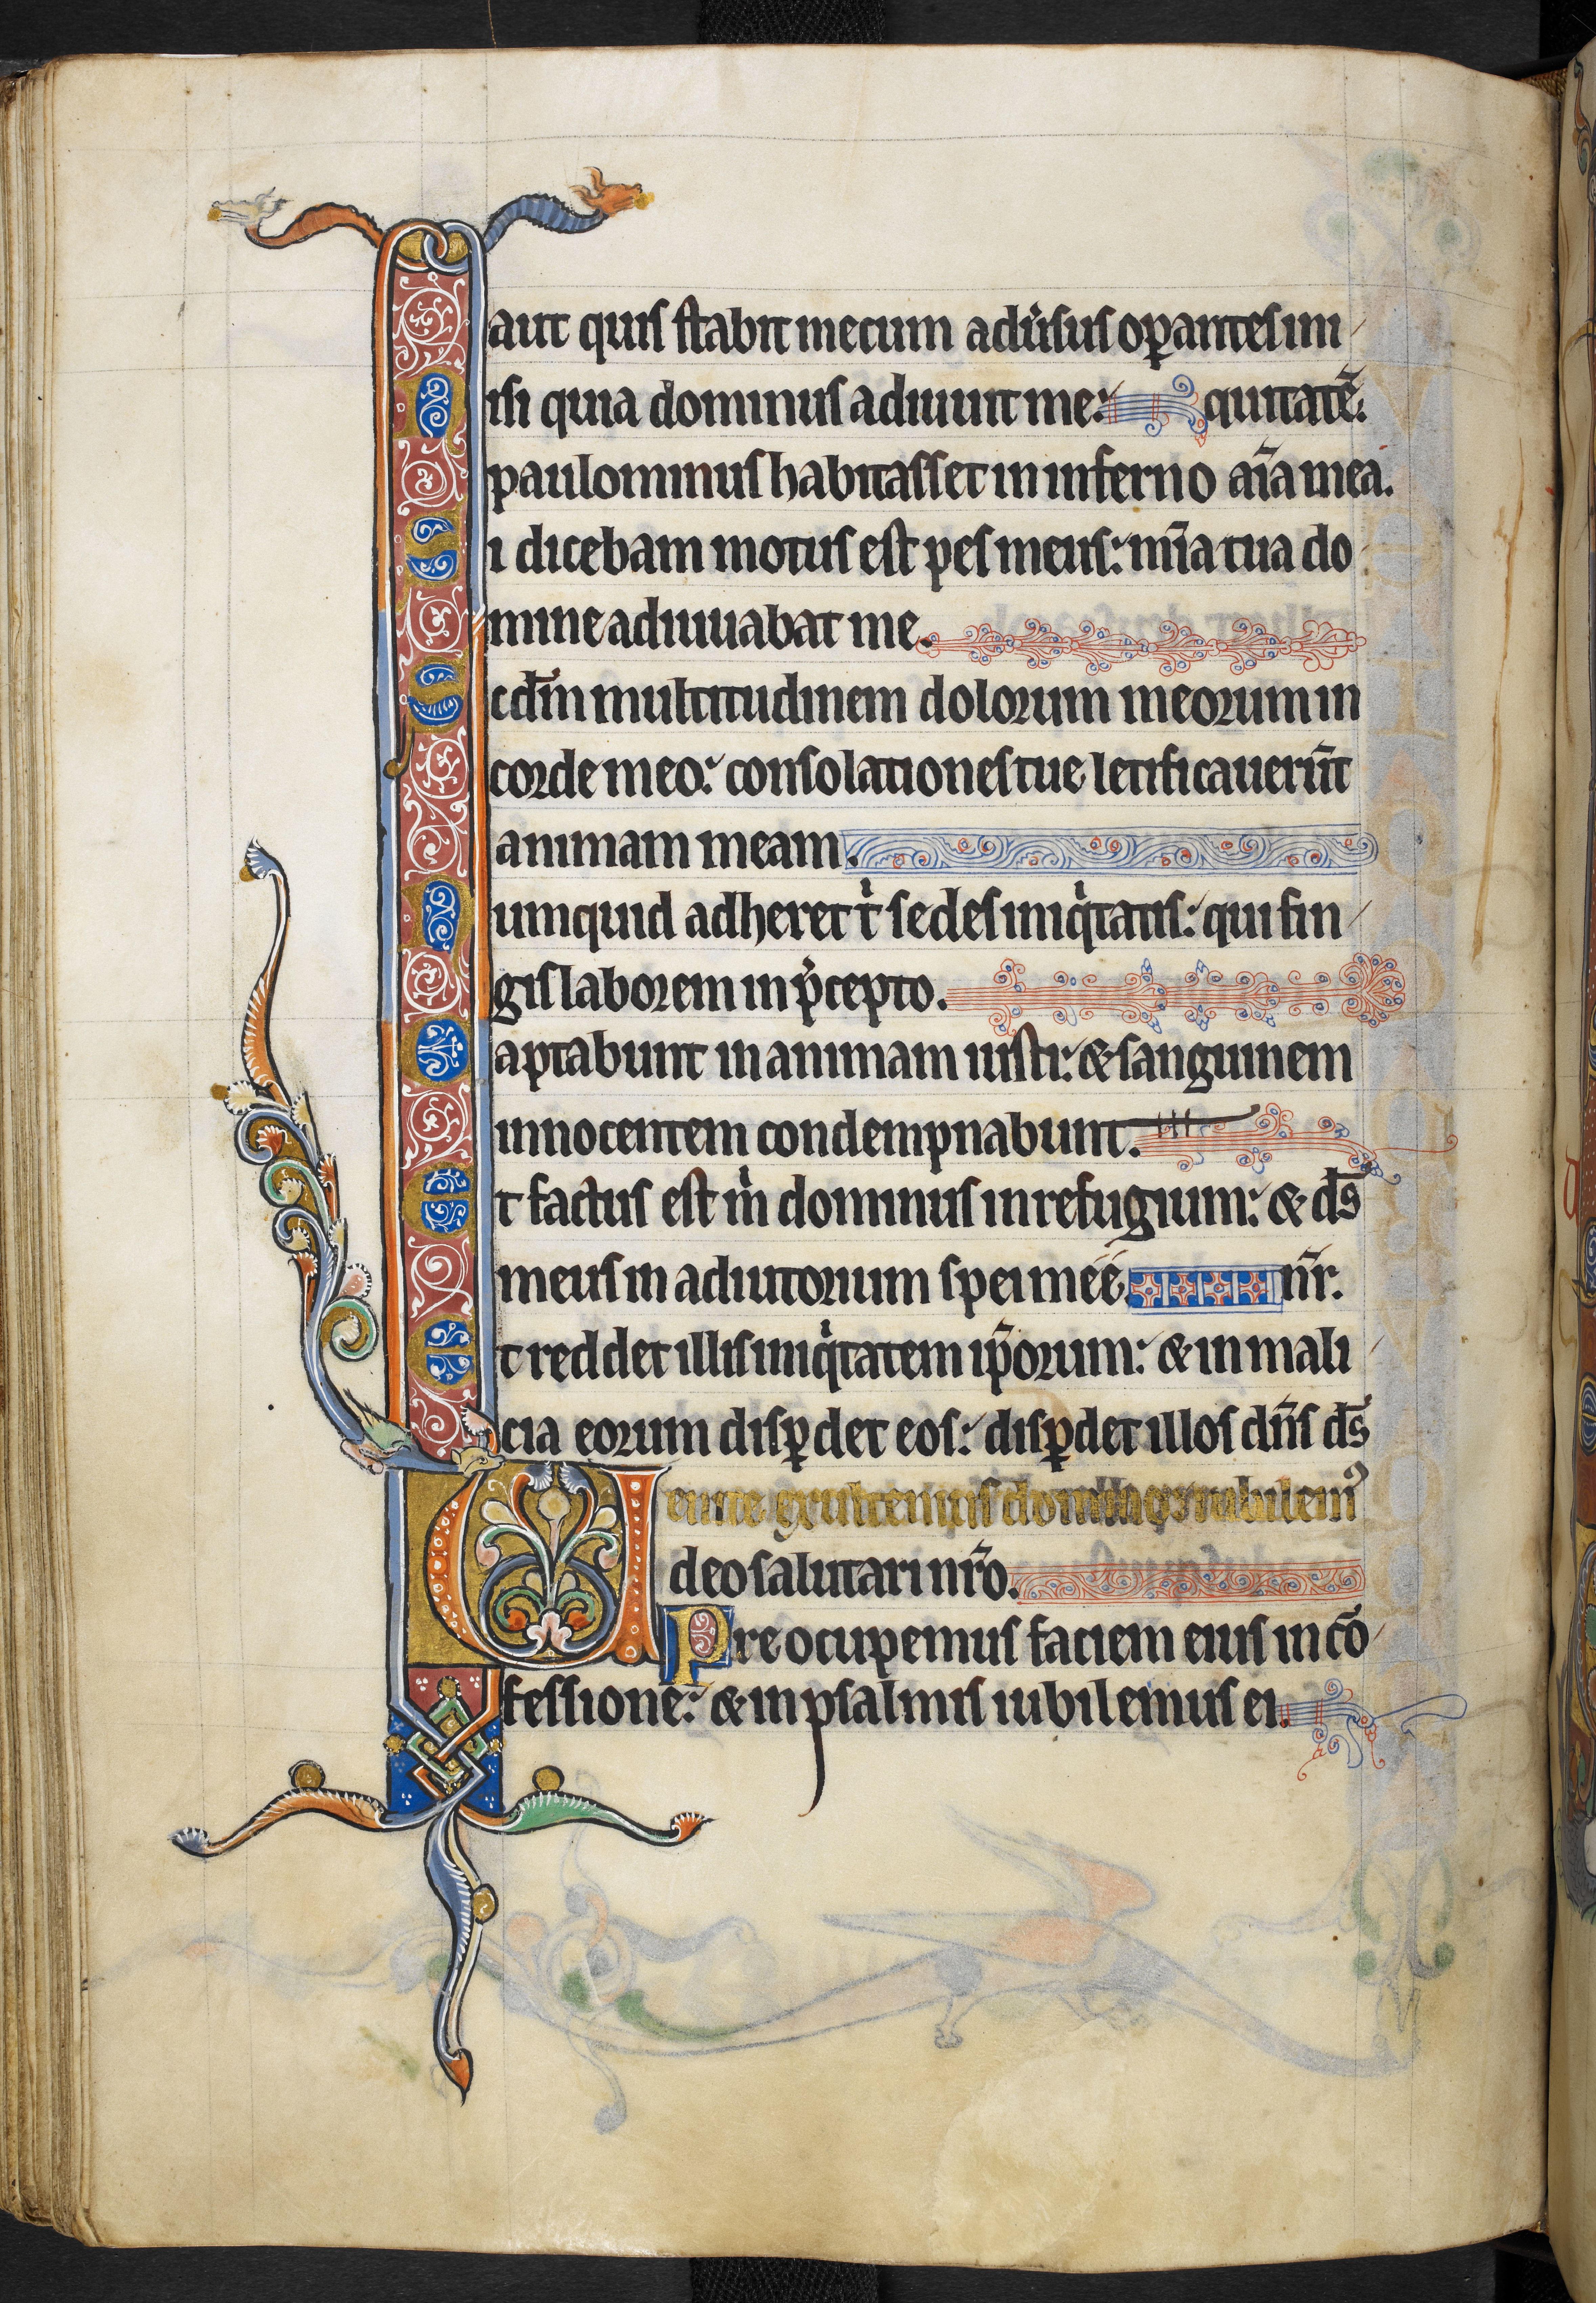 aut quis stabit mecum adu̾sus oꝑantes ini
Nisi quia dominus adiuuit me: quitatē.
paulominus habitasset in inferno aı̄a mea.
Si dicebam motus est pes meus: mı̄a tua do
mine adiuuabat me.
Scdm̄ multitudinem dolorum meorum in
corde meo: consolationes tue letificauerūt
animam meam.
Numquid adheret tͥ sedes iniqͥtatis: qui fin
gis laborem in p̾cepto.
Captabunt in animam iusti: & sanguinem
innocentem condempnabunt.
Et factus est mͥ dominus in refugium: & ds̄
meus in adiutorium spei meé. nr̄.
Et reddet illis iniqͥtatem ip̄orum: & in mali
cia eorum disꝑdet eos: disꝑdet illos dn̄s ds̄
Uenite exultemus domino iubilemꝰ
deo salutari nr̄o.
Preocupemus faciem eius in cō
fessione: & in psalmis iubilemus ei.